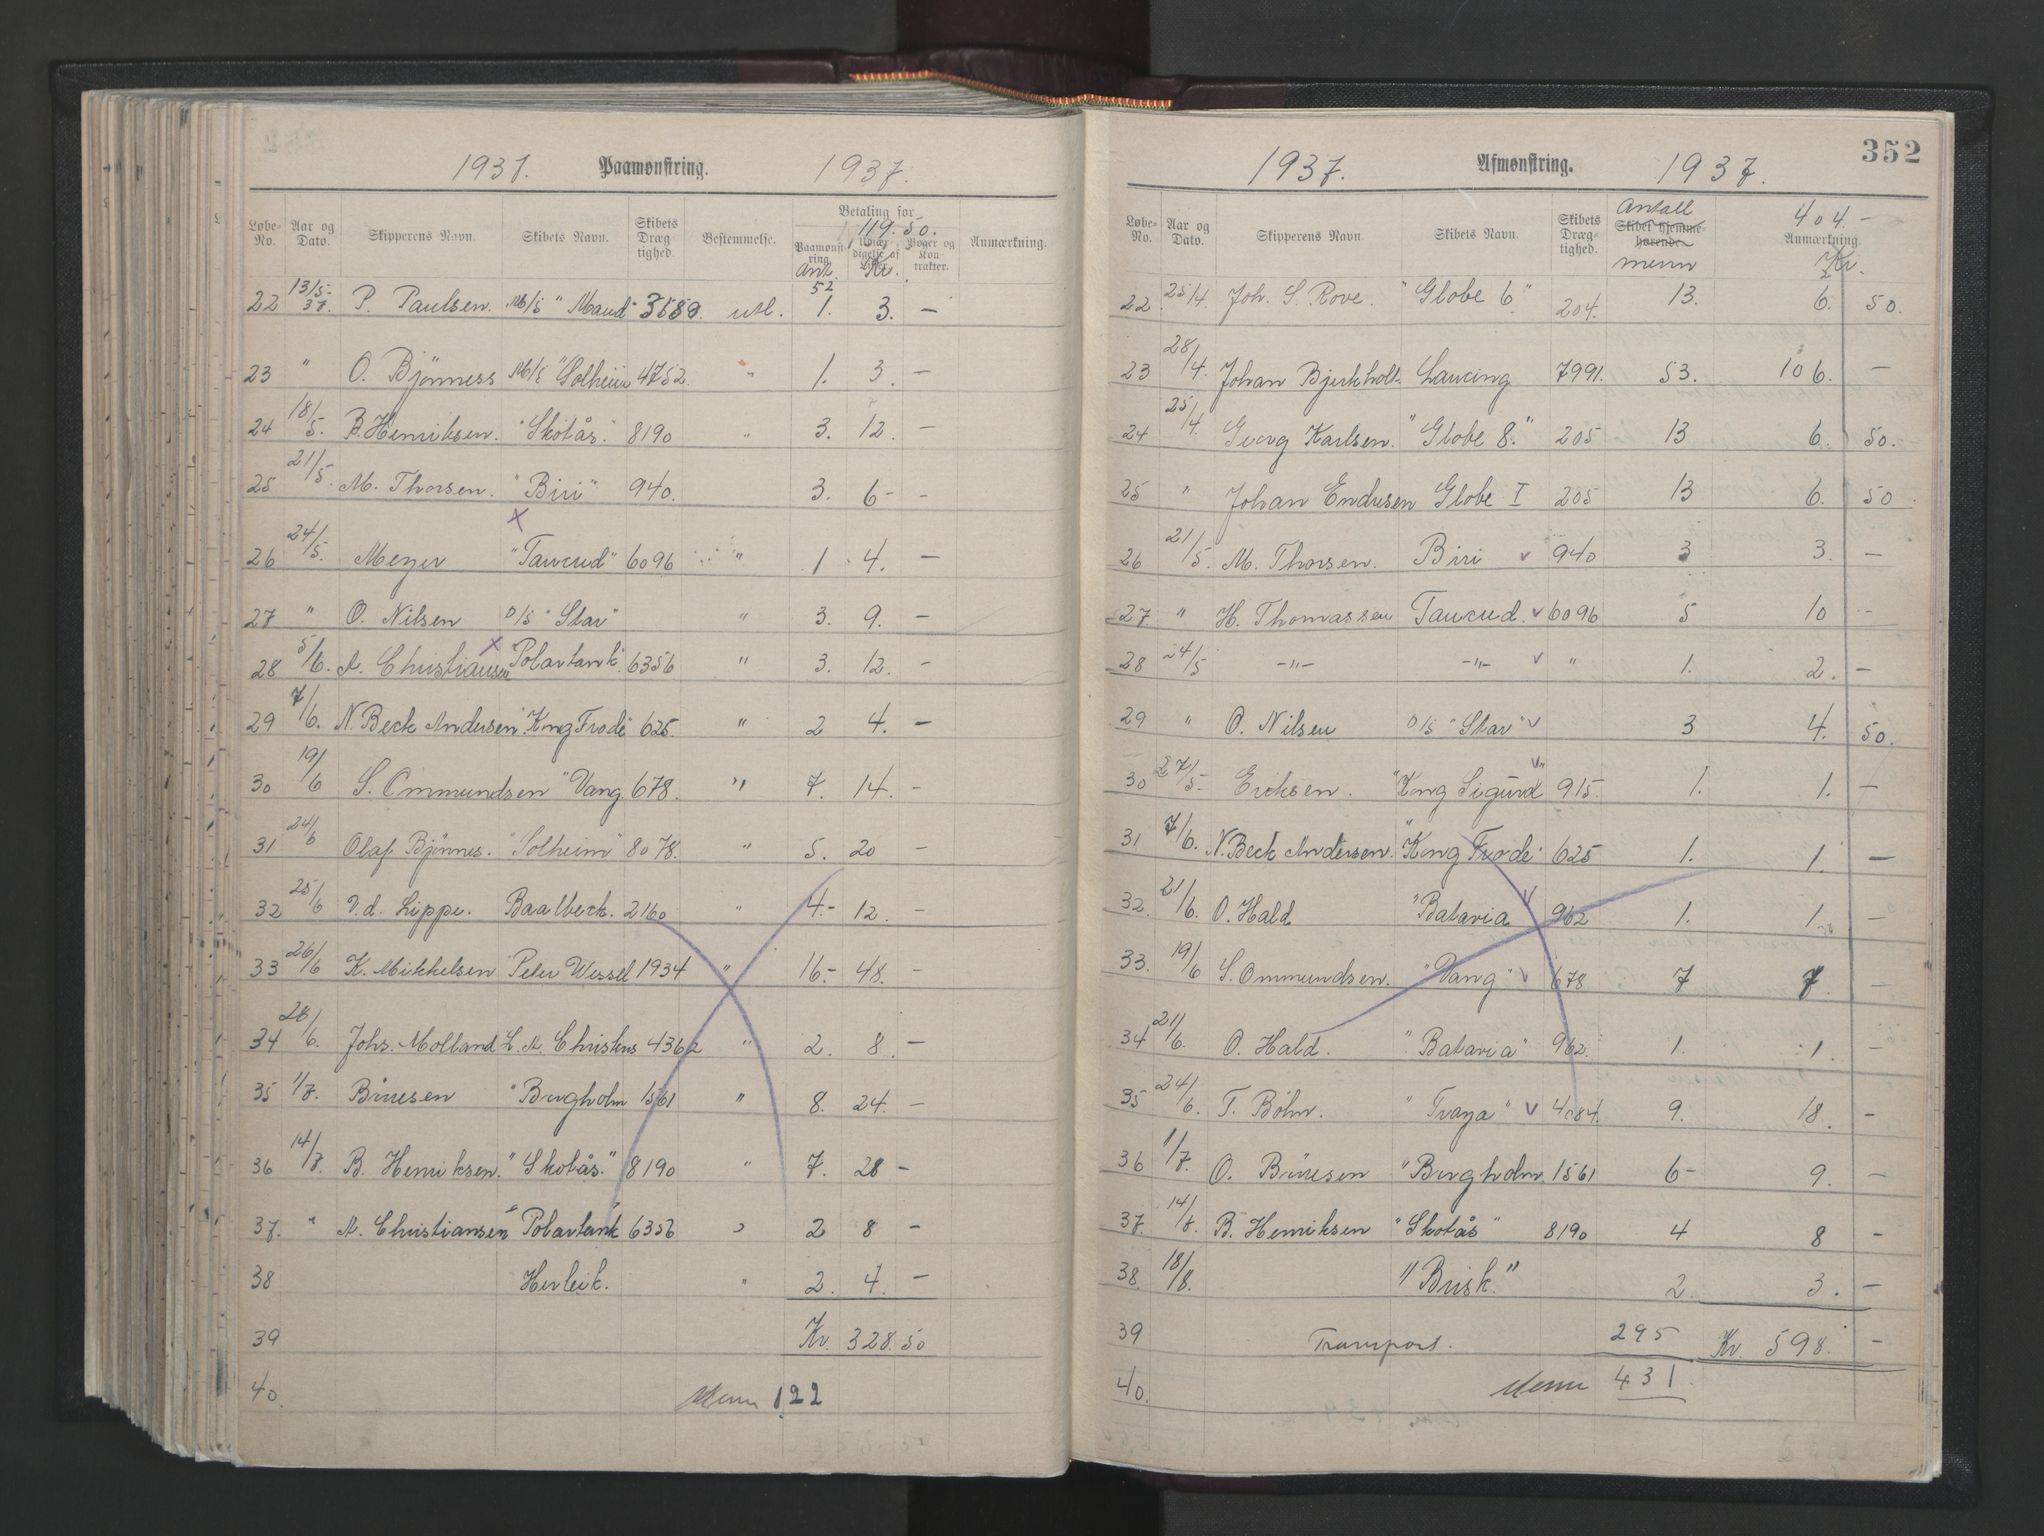 352
1937. Paamønstring. 1937.
Løbe-No. Aar og Dato. Skipperens Navn. Skibets Navn. Skibets Dræg-tighed. Bestemmelse. Betaling for 119.50. Paamønst-ring Ant. Kr. Bøger og Kon-trakter. Anmærkning.
52
22 13/5-37. P. Paulsen. M/S "Maud" 3189. utl. 1. 3. -
23 " O. Bjönness M/S "Solheim 4752. " 1. 3. -
24 18/5. B. Henriksen. "Skotås." 8190 " 3. 12. -
25 21/5. M. Thorsen. "Biri" 940. 3. 6 - -
26 24/5. Meyer "Taurud" 6096 " 1 4. -
27 " O. Nilsen D/S "Star" " 3. 9. -
28 5/6. A. Christiansen "Polartank". 6356 " 3. 12. -
29 7/6. N. Beck Andersen "Kong Frode" 625. " 2 4. -
30 19/6 S. Ommundsen "Vang. 678. " 7. 14. -
31 24/6 Olaf Bjönnes. "Solheim" 8078. " 5. 20 -
32 25/6 V.d. Lippe. Baalbeck. 2160 " 4.- 12. -
33 26/6 K. Mikkelsen Peter Wessel 1934 " 16- 48. -
34 28/6. Johs. Molland L. A. Christens 4362 " 2. 8. -
35 1/7. Büresen "Bergholm 1561 " 8. 24. -
36 14/7. B. Henriksen. "Skotås." 8190 " 7. 28 -
37. " A. Christiansen "Polartank" 6356 " 2 8 -
38 Herleik. " 2. 4. -
39 Kr. 328.50
40. Menn 122
1937. Afmønstring. 1937.
Løbe-No. Aar og Dato. Skipperens Navn. Skibets Navn. Skibets Dræg-tighed. Antall Skibet hjemme-hørende menn 404.- Anmærkning. Kr.
22. 25/4. Joh. S. Rove. "Globe 6" 204. 13. 6. 50.
23 28/4. Johan Bjerkholt. Lancing 7991. 53. 106. -
24 25/4. Georg Karlsen. "Globe 8." 205 13 6. 50.
25 " Johan Endresen Globe I 205 13 6. 50.
26 21/5. M. Thorsen. Biri v 940 3 3. -
27 " H. Thomassen Taurud. v 6096 5 10 -
28 24/5 -"- -"- v " 1. 2. -
29 " O. Nilsen D/S "Star" v 3 4. 50.
30 27/5. Ericksen. "Kong Sigurd" v 915. 1. 1. -
31 7/6. N. Beck Andersen. "Kong Frode" 625 1. 1. -
32. 21/6. O. Hald "Batavia v 962 1. 1. -
33. 19/6 S. Ommundsen. "Vang" v 678 7 7. -
34 21/6. O. Hald. "Batavia" 962. 1. 1. -
35 24/6. T. Böhn. "Troya" v 4084. 9. 18. -
36 1/7. O. Büresen "Bergholm 1561 6- 9. -
37. 14/7. B. Henriksen "Skotås" 8190 4 8 -
38. 18/8. "Brisk." 2. 3. -
39 Transport. 295 Kr. 598. -
40. Menn 431.